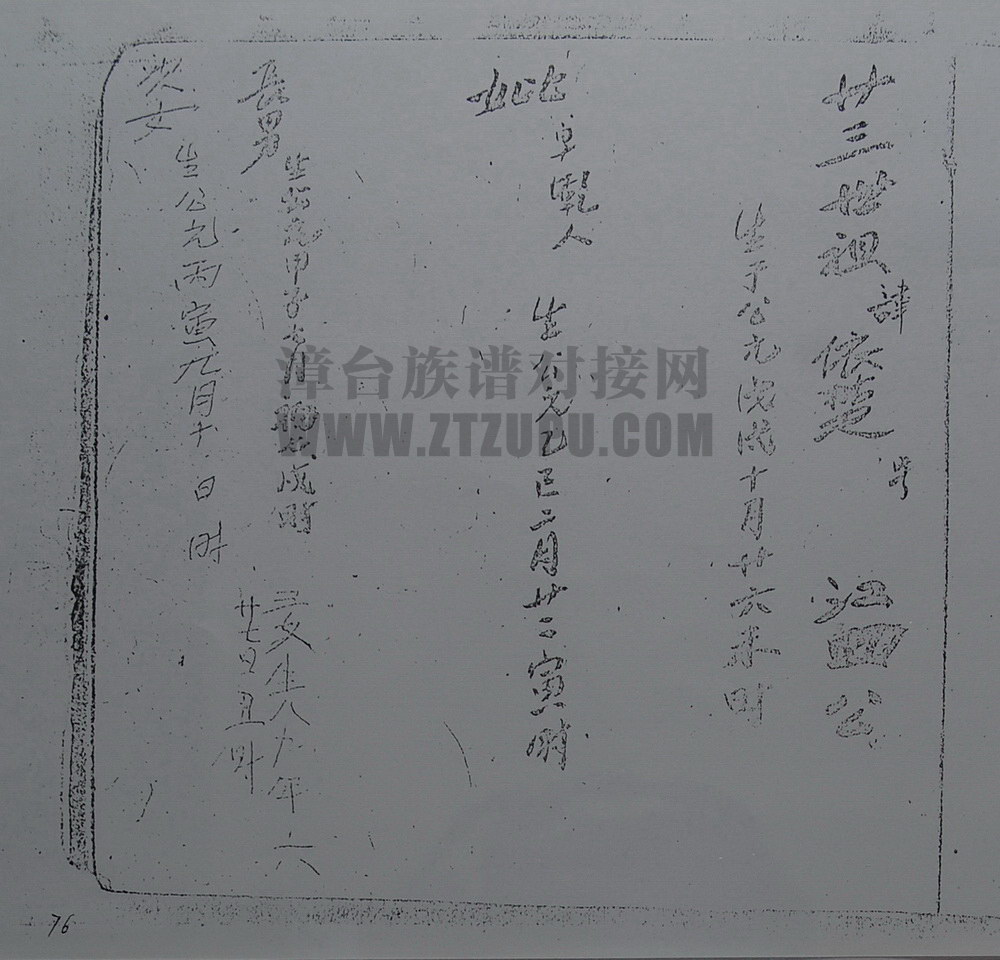 廿三世祖 諱 依楚 号 江 公
生于公元戊戌十月廿六未时
妣 卓 人 生公元乙巳二月廿二寅时
長男 生公元甲子 月 戌时
三女生八九年六
廿七日丑时
次女 生公元丙寅九月十日 时
漳台族谱对接网
WWW.ZTZUPU.COM
76